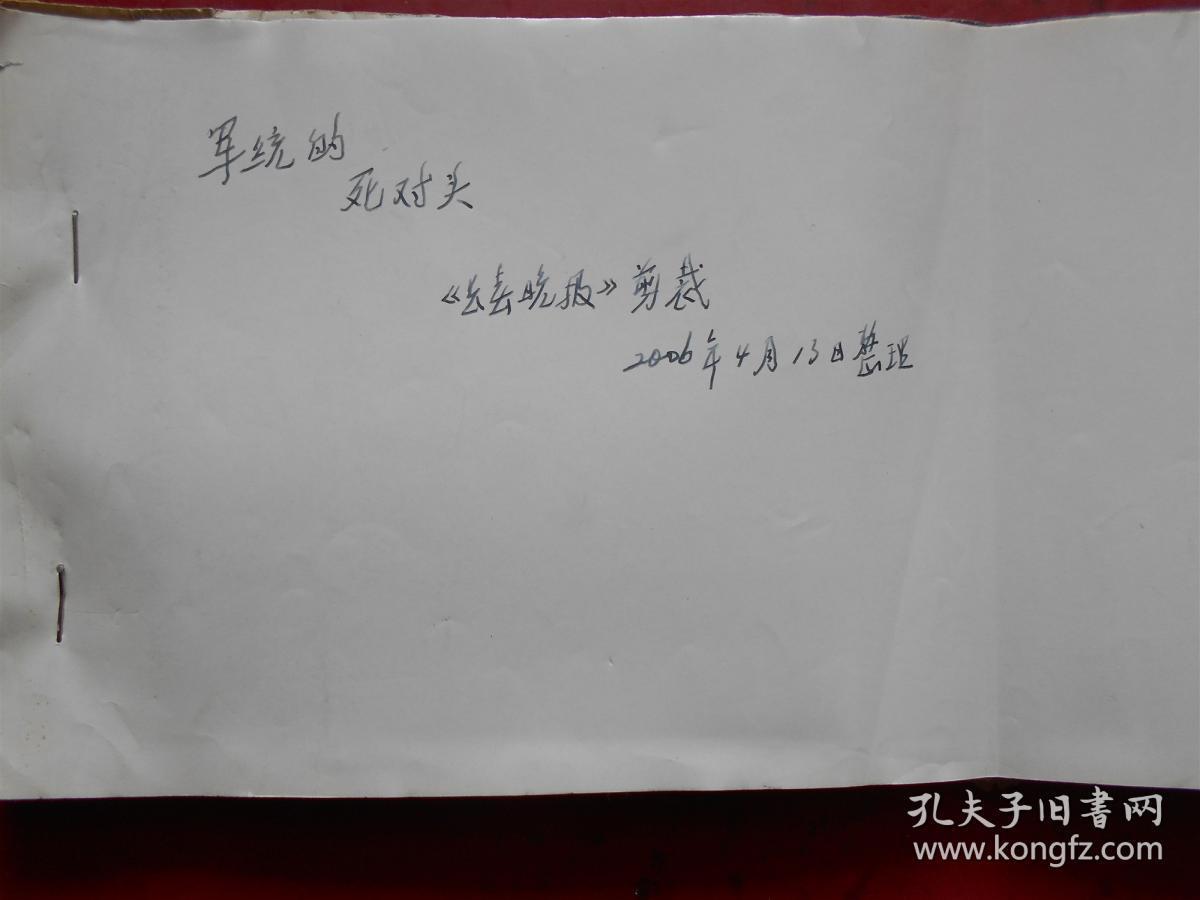 军统的
死对头
《长春晚报》剪裁
2006年4月13日整理
孔夫子旧书网
www.kongfz.com